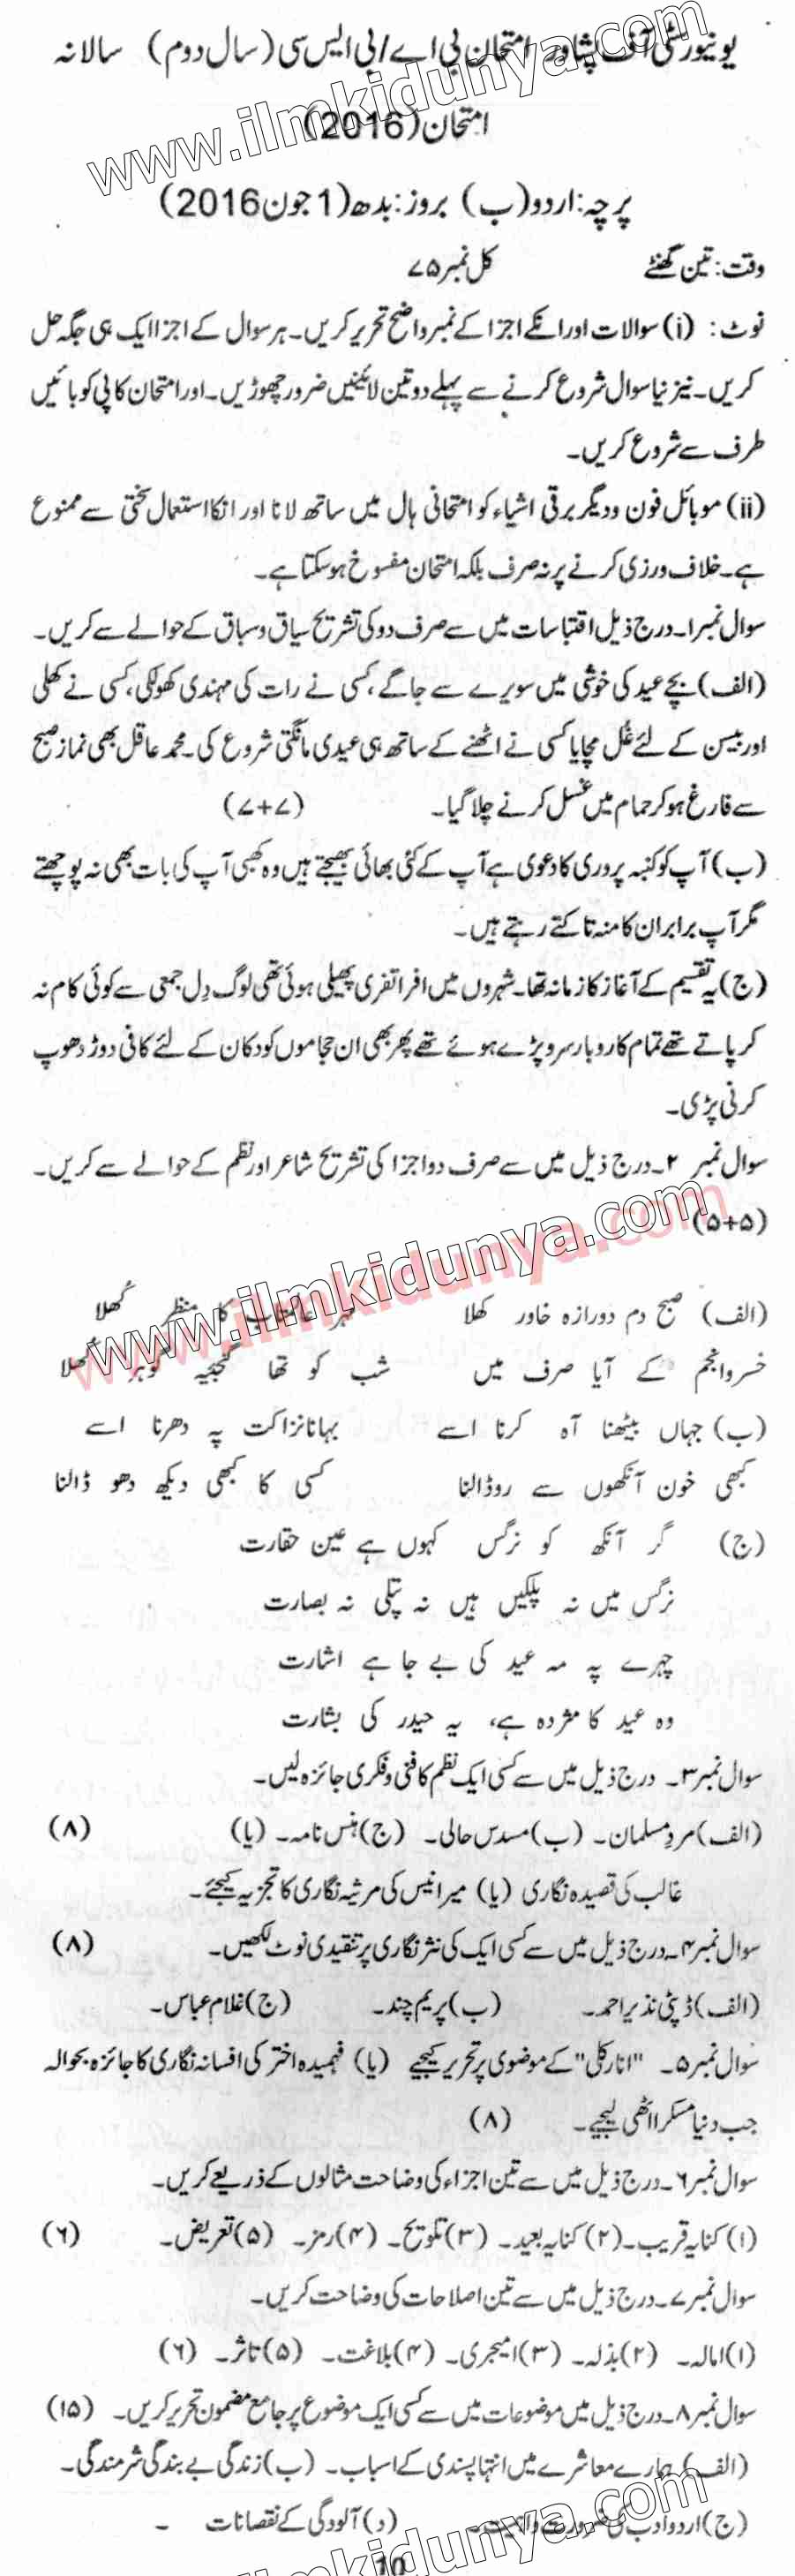 یونیورسٹی آف پشاور امتحان بی اے/بی ایس سی (سال دوم) سالانہ
امتحان (2016)
پرچہ: اردو (ب) بروز: بدھ (1 جون 2016)
وقت: تین گھنٹے کل نمبر ۷۵
نوٹ: (i) سوالات اور انکے اجزا کے نمبر واضح تحریر کریں۔ ہر سوال کے اجزا ایک ہی جگہ حل
کریں۔ نیز نیا سوال شروع کرنے سے پہلے دو تین لائینیں ضرور چھوڑیں۔ اور امتحان کاپی کو بائیں
طرف سے شروع کریں۔
(ii) موبائل فون و دیگر برقی اشیاء کو امتحانی ہال میں ساتھ لانا اور انکا استعمال سختی سے ممنوع
ہے۔ خلاف ورزی کرنے پر نہ صرف بلکہ امتحان مفسوخ ہو سکتا ہے۔
سوال نمبر ۱۔ درج ذیل اقتباسات میں سے صرف دو کی تشریح سیاق و سباق کے حوالے سے کریں۔
(الف) بچے عید کی خوشی میں سویرے سے جاگے، کسی نے رات کی مہندی کھولکی، کسی نے کھلی
اور بیسن کے لئے غُل مچایا کسی نے اٹھنے کے ساتھ ہی عیدی مانگتی شروع کی۔ محمد عاقل بھی نماز صبح
سے فارغ ہو کر حمام میں غسل کرنے چلا گیا۔ (۷+۷)
(ب) آپ کو کنبہ پروری کا دعوی ہے آپ کے کئی بھائی بھیجتے ہیں وہ کبھی آپ کی بات بھی نہ پوچھتے
مگر آپ برابر ان کا منہ تاکتے رہتے ہیں۔
(ج) یہ تقسیم کے آغاز کا زمانہ تھا۔ شہروں میں افراتفری پھیلی ہوئی تھی لوگ دِل جمعی سے کوئی کام نہ
کر پاتے تھے تمام کاروبار سرو پڑے ہوئے تھے پھر بھی ان حجاموں کو دکان کے لئے کافی دوڑ دھوپ
کرنی پڑی۔
سوال نمبر ۲۔ درج ذیل میں سے صرف دو اجزا کی تشریح شاعر اور نظم کے حوالے سے کریں۔
(۵+۵)
www.ilmkidunya.com
(الف) صبح دم دورازہ خاور کھلا مہر عالمتاب کا منظر کُھلا
خسرو انجم کے آیا صرف میں شب کو تھا گنجینہ گوہر کُھلا
(ب) جہاں بیٹھنا آہ کرنا اسے بہانا نزاکت پہ دھرنا اسے
کبھی خون آنکھوں سے رو ڈالنا کسی کا کبھی دیکھ دھو ڈالنا
(ج) گر آنکھ کو نرگس کہوں ہے عین حقارت
نرگس میں نہ پلکیں ہیں نہ پتلی نہ بصارت
چہرے پہ مہ عید کی بے جا ہے اشارت
وہ عید کا مژدہ ہے، یہ حیدر کی بشارت
سوال نمبر ۳۔ درج ذیل میں سے کسی ایک نظم کا فنی و فکری جائزہ لیں۔
(الف) مردِ مسلمان۔ (ب) مسدس حالی۔ (ج) ہنس نامہ۔ (یا) (۸)
غالب کی قصیدہ نگاری (یا) میر انیس کی مرثیہ نگاری کا تجزیہ کیجئے۔
سوال نمبر ۴۔ درج ذیل میں سے کسی ایک کی نثر نگاری پر تنقیدی نوٹ لکھیں۔ (۸)
(الف) ڈپٹی نذیر احمد۔ (ب) پریم چند۔ (ج) غلام عباس۔
سوال نمبر ۵۔ "انار کلی" کے موضوی پر تحریر کیجیے (یا) فہمیدہ اختر کی افسانہ نگاری کا جائزہ بحوالہ
جب دنیا مسکرا اٹھی لیجیے۔ (۸)
سوال نمبر ۶۔ درج ذیل میں سے تین اجزاء کی وضاحت مثالوں کے ذریعے کریں۔
(۱) کنایہ قریب۔ (۲) کنایہ بعید۔ (۳) تلویح۔ (۴) رمز۔ (۵) تعریض۔ (۶)
سوال نمبر ۷۔ درج ذیل میں سے تین اصلاحات کی وضاحت کریں۔
(۱) امالہ۔ (۲) بذلہ۔ (۳) امیجری۔ (۴) بلاغت۔ (۵) تاثر۔ (۶)
سوال نمبر ۸۔ درج ذیل میں موضوعات میں سے کسی ایک موضوع پر جامع مضمون تحریر کریں۔ (۱۵)
(الف) ہمارے معاشرے میں انتہا پسندی کے اسباب۔ (ب) زندگی بے بندگی شرمندگی۔
(ج) اردو ادب کی ضرورت و اہمیت۔ (د) آلودگی کے نقصانات ۔
10